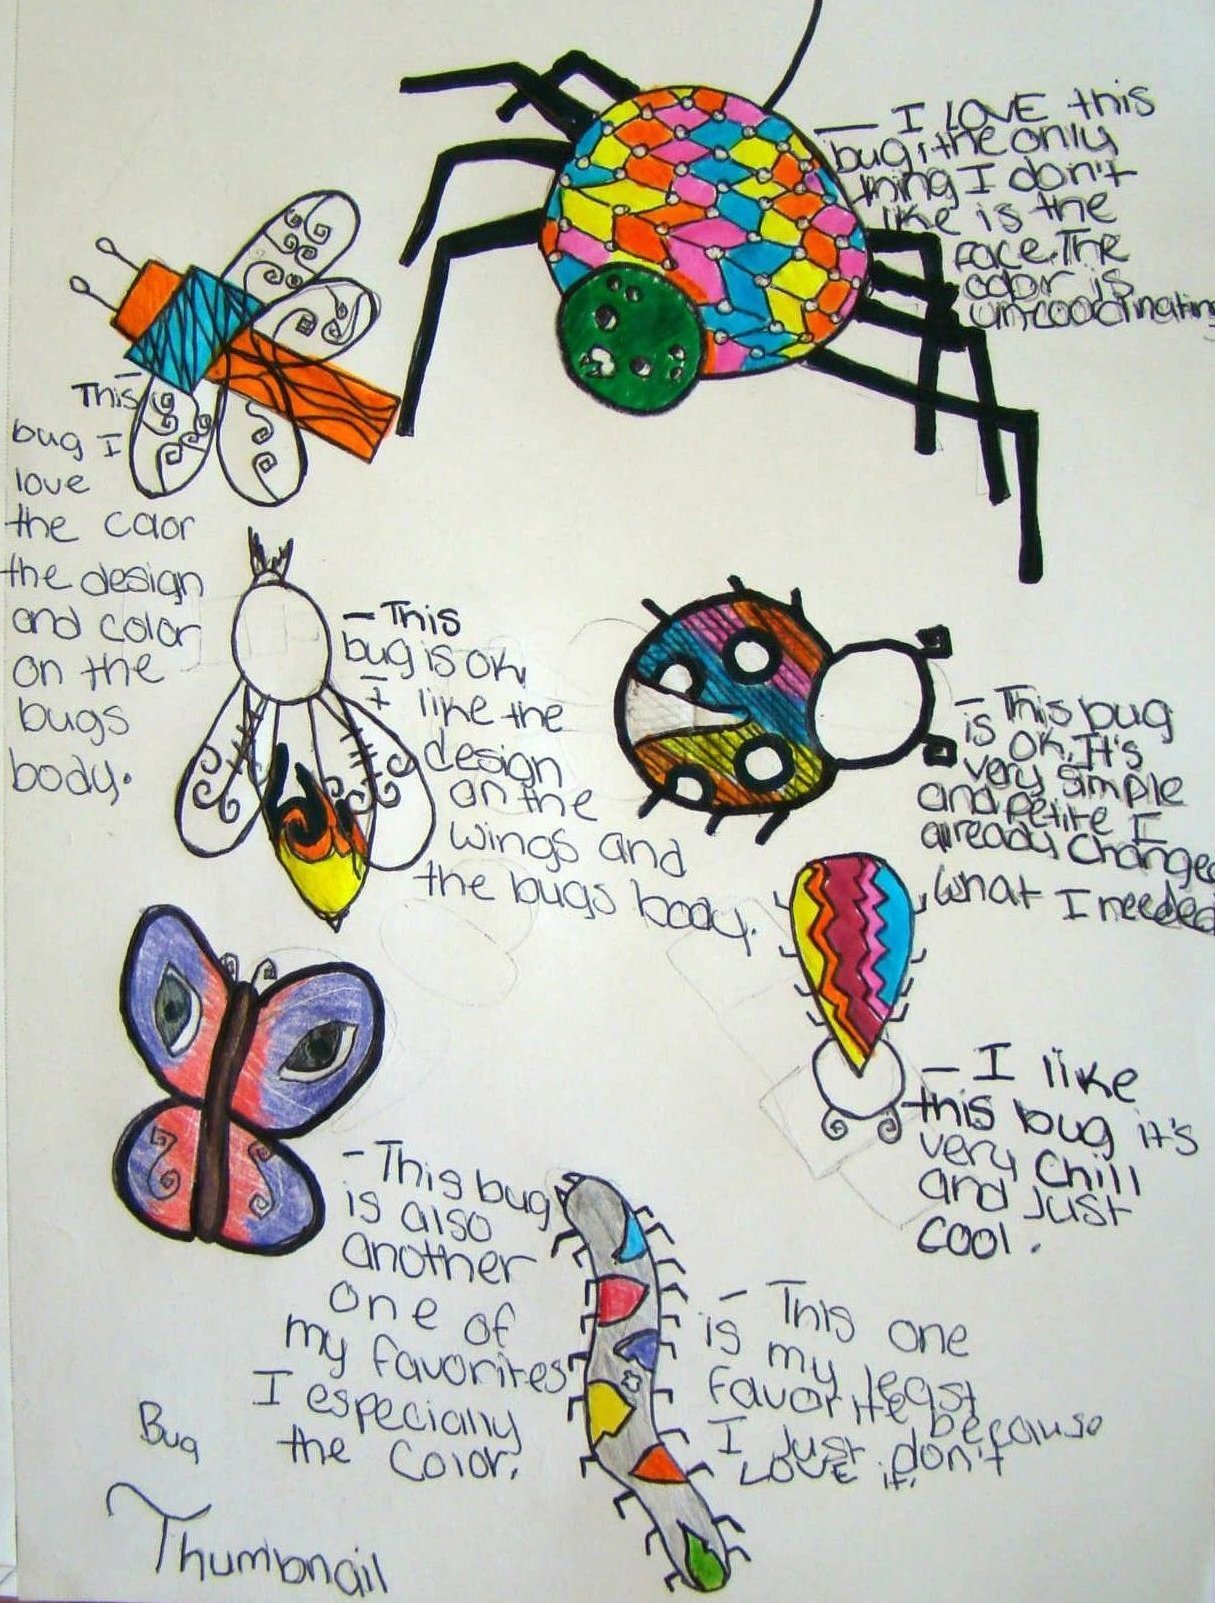 — I LOVE this
bug, the only
thing I don't
like is the
face. The
color is
un-coordinating
— This
bug I
love
the color
the design
and color
on the
bugs
body.
— This
bug is ok,
I like the
design
on the
wings and
the bugs body.
— This bug
is ok. It's
very simple
and Petite I
already changed
what I needed
— I like
this bug it's
very chill
and Just
cool.
— This bug
is also
another
one of
my favorites
I especially
the color.
— This one
is my least
favorite because
I Just don't
LOVE it.
Bug
Thumbnail